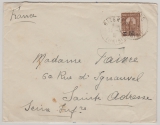 France
Madame Faivre
60 Rue d'Ignauval
Sainte Adresse
Seine Infre